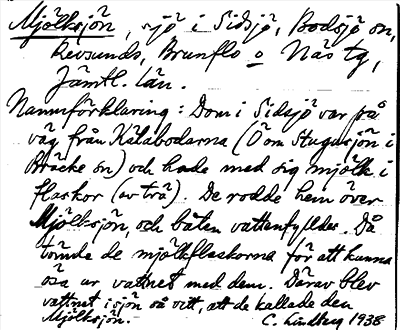 Mjölksjön, sjö i Sidsjö, Bodsjö sn,
Revsunds, Brunflo o Näs tg,
Jämtl. län.
Namnförklaring: Dom i Sidsjö var på
väg från Kälabodarna (Ö om Stugusjön i
Bräcke sn) och hade med sig mjölk i
flaskor (av trä). De rodde hem över
Mjölksjön, och båten vattenfylldes. Då
tömde de mjölkflaskorna för att kunna
ösa ur vattnet med dem. Därav blev
vattnet i sjön så vitt, att de kallade den
Mjölksjön. C. Lindberg 1938